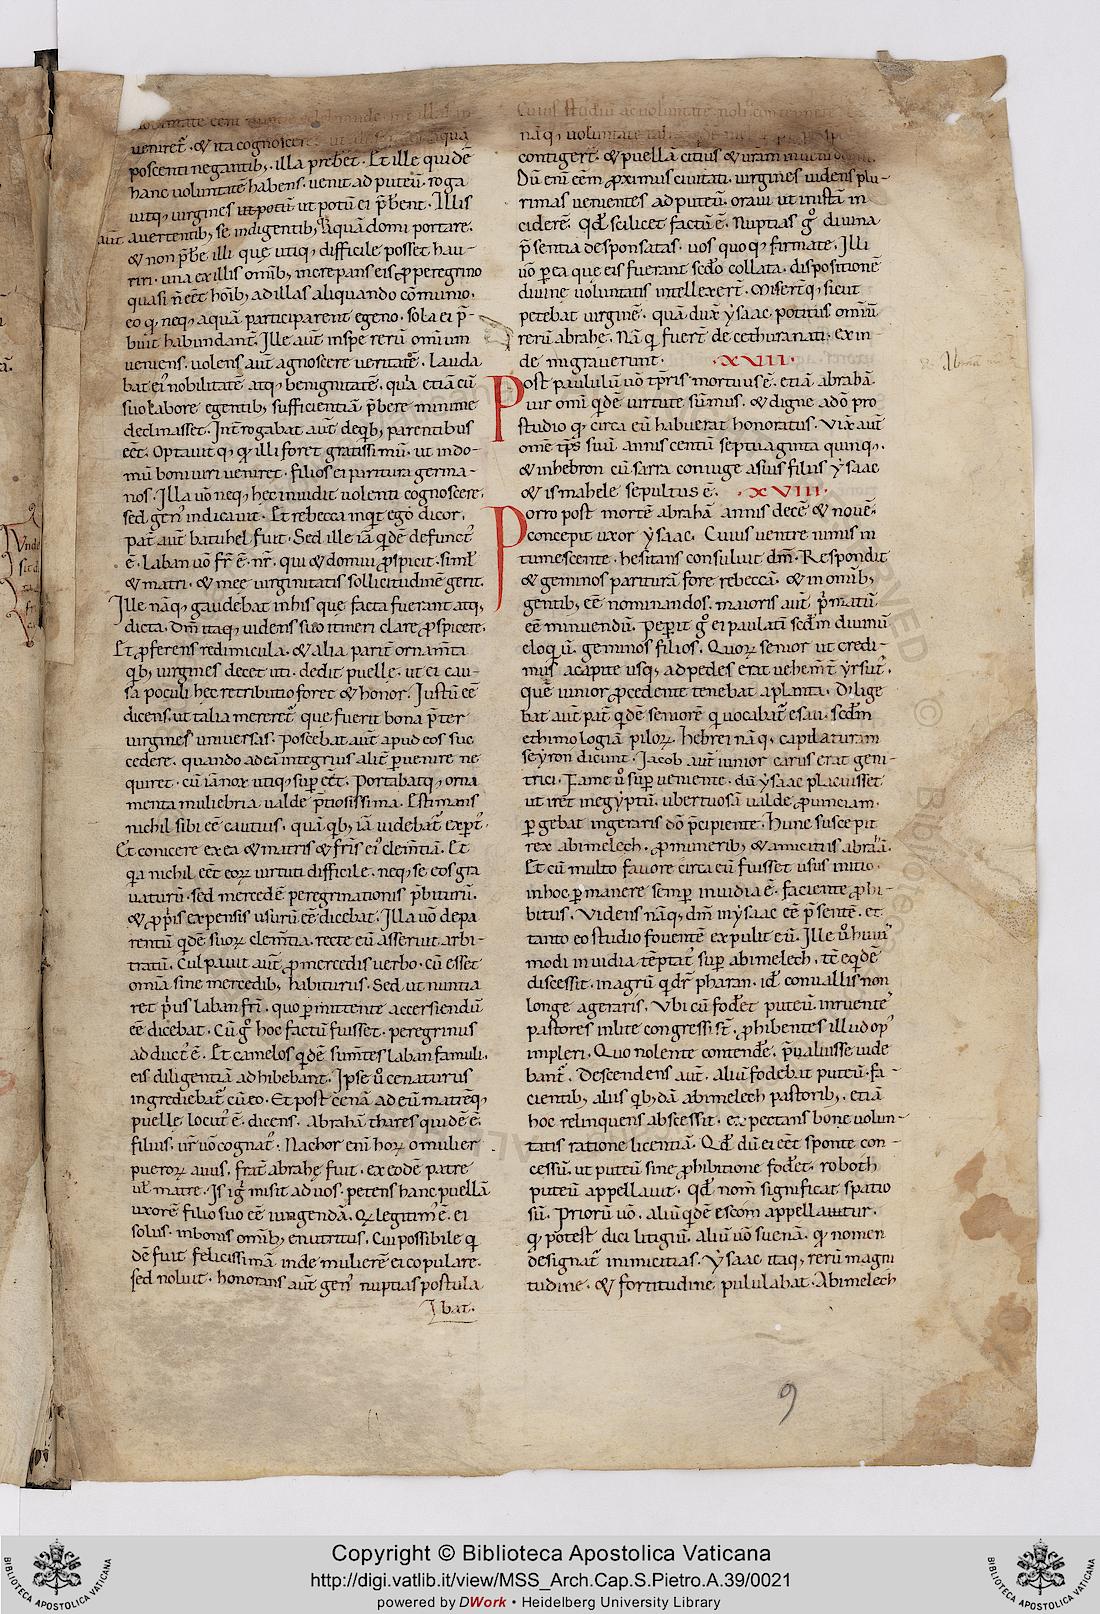 uenir&̄. & ita cognoscere
poscenti negantib; illa p̄beret. Et ille quidē
hanc uoluntatē habens. uenit ad puteū. roga
uitq; uirgines ut potū ei p̄berent. Illis
aūt auertentib; se indigentib; aquā domi portare.
& non p̄be illi que utiq; difficile posset hau-
riri. una ex illis omīb; increpans eis ꝓ peregrino
quasi n̄ eēt hoīb; ad illas aliquando cōmunio.
eo q neq; aquā participarent egeno. sola ei p̄-
buit habundant̄. Ille aūt in spe rerū omīum
ueniens. uolens aūt agnoscere ueritatē. Lauda
bat ei' nobilitatē atq; benignitatē. quia etiā cū
suo labore egentib; sufficientiā p̄bere minime
declinasset. Int̄rogabat aūt de qb; parentibus
eēt. Optauitq; qd illi foret gratissimū. ut in do-
mū boni uiri ueniret. filios ei paritura germa-
nos. Illa uō neq; hec inuidit uolenti cognoscere.
sed gen' indicauit. Et rebecca inquit ego dicor.
pat̄ aūt batuhel fuit. Sed ille iā qdē defunct'
ē. Laban uō fr̄ ē nr̄. qui & domui ꝓspicit. simil'
& matri. & mee uirginitatis sollicitudinē gerit.
Ille nāq; gaudebat in his que facta fuerant atq;
dicta. Dm̄ itaq; uidens suo itineri clare ꝓspicere.
Et ꝓferens redimicula. & alia parit̄ ornam̄ta
qb; uirgines decet uti. dedit puelle. ut ei cau-
sa poculi hec retributio foret & honor. Iustū eē
dicens. ut talia mereret̄. que fuerit bona p̄ter
uirgines uniuersas. Poscebat aūt apud eos suc
cedere. quando ad ei integrius alit̄ puenire ne
quiret. cū iā nox utiq; sup eēt. Portabatq; orna
menta muliebria ualde p̄tiosissima. Estimans
nichil sibi eē cautius. quā qb; iā uidebat̄ expert'.
Et conicere ex ea & matris & fr̄is ei' clem̄tiā. Et
qa nichil eēt eoꝝ uirtuti difficile. neq; se eos gra
uaturū. sed mercedē peregrinationis p̄biturū.
& ꝓpis expensis usurū eē dicebat. Illa uō de pa
rentū qdē suoꝝ clem̄tia. recte eū asseruit arbi-
tratū. Culpauit aūt ꝓ mercedis uerbo. cū esset
omīa sine mercedib; habiturus. Sed ut nuntia
ret p'us laban fr̄i. quo pmittente accersiendū
eē dicebat. Cū g hoc factū fuisset. peregrinus
adduct' ē. Et camelos qdē sum̄tes laban famuli.
eis diligentiā adhibebant. Ipse ū cenaturus
ingrediebat̄ cū eo. Et post cenā ad eū matreq;
puelle. locut' ē. dicens. Abrahā thares quidē ē.
filius. ur̄ uō cognat'. Nachor eni hoꝝ o mulier
pueroꝝ auus. frat̄ abrahę fuit. ex eodē patre
ul' matre. Is ig' misit ad uos. petens hanc puellā
uxorē filio suo eē iungendā. Q legitim' ē. ei
solus. in bonis omīb; enutritus. Cui possibile q
dē fuit felicissimā inde mulierē ei copulare.
sed noluit. honorans aūt gen' nuptias postula
bat.
Cuius studiū ac uoluntatē noli
nāq; uoluntate
contigert̄. & puellā citius
Dū eni eēm ꝓximus ciuitati. uirgines uidens plu-
rimas uenientes ad puteū. oraui ut in istā in
ciderē. Qd scilicet factū ē. Nuptias g diuina
p̄sentia desponsatas. uos quoq; firmate. Illi
uō p ea que eis fuerant scdo collata. dispositionē
diuine uoluntatis intellexert̄. Miserntq; sicut
petebat uirginē. quā dux̄ ysaac. potitus omīū
rerū abrahe. Nā q fuert̄ de cethura nati. ex in
de migrauerunt. .XVII.
Post paululū uō tp̄ris mortuus ē. etiā abrahā.
uir omi qdē uirtute sūmus. & digne a dō pro
studio q circa eū habuerat honoratus. Vix̄ aūt
omē tp̄s suū annis centū septuaginta quinq;.
& in hebron cū sarra coniuge a suis filiis ysaac
& ismahele sepultus ē. .XVIII.
Porro post mortē abrahā annis decē & nouē.
concepit uxor ysaac. Cuius uentre nimis in
tumescente. hesitans consuluit dm̄. Respondit
& geminos parituram fore rebeccā. & in omīb;
gentib; eē nominandos. maioris aūt p̄matū
eē minuendū. Peperit g ei paulatī scdm diuinū
eloqū. geminos filios. Quoꝝ senior ut credi-
mus a capite usq; ad pedes erat uehem̄t yrsut'.
quē iunior ꝓcedente tenebat a planta. Dilige
bat aūt pat̄ qdē seniorē q uocabat̄ esau. scdm
ethimologiā piloꝝ. Hebrei nāq; capilaturam
seyron dicunt. Iacob aūt iunior carus erat geni-
trici. Fame ū sup ueniente. dū ysaac placuisset
ut iret in egyptū. ubertuosā ualde ꝓuinciam.
pgebat in geraris dō p̄cipiente. Hunc suscepit
rex abimelech. ꝓ munerib; & amicitiis abraā.
Et cū multo fauore circa eū fuisset usus initio.
in hoc pmanere semp inuidia ē faciente ꝓhi-
bitus. Videns nāq; dm̄ in ysaac eē p̄sentē. et
tanto eo studio fouentē expulit eū. Ille ū hui'
modi inuidia tēptat' sup abimelech. tē eqdē
discessit. in agrū q dr̄ pharan. id' conuallis non
longe a geraris. Vbi cū foderet puteū. irruentes
pastores in lite congressi st̄. ꝓhibentes illud op'
impleri. Quo nolente contendē. p̄ualuisse uide
bant̄. Descendens aūt. aliū fodebat puteū. fa-
cientib; aliis qb;dā abimelech pastorib; etiā
hoc relinquens abscessit. expectans bone uolun-
tatis ratione licentiā. Qd dū ei eēt sponte con-
cessū. ut puteū sine ꝓhibitione foderet. roboth
puteū appellauit. Qd nom̄ significat spatio
sū. Priorū uō. aliū qdē escom appellauitur.
q potest dici litigiū. aliū uō suenā. q nomen
designat' inimicitias. Ysaac itaq; rerū magni
tudine. & fortitudine pululabat. Abimelech
9
Copyright © Biblioteca Apostolica Vaticana
http://digi.vatlib.it/view/MSS_Arch.Cap.S.Pietro.A.39/0021
powered by DWork • Heidelberg University Library